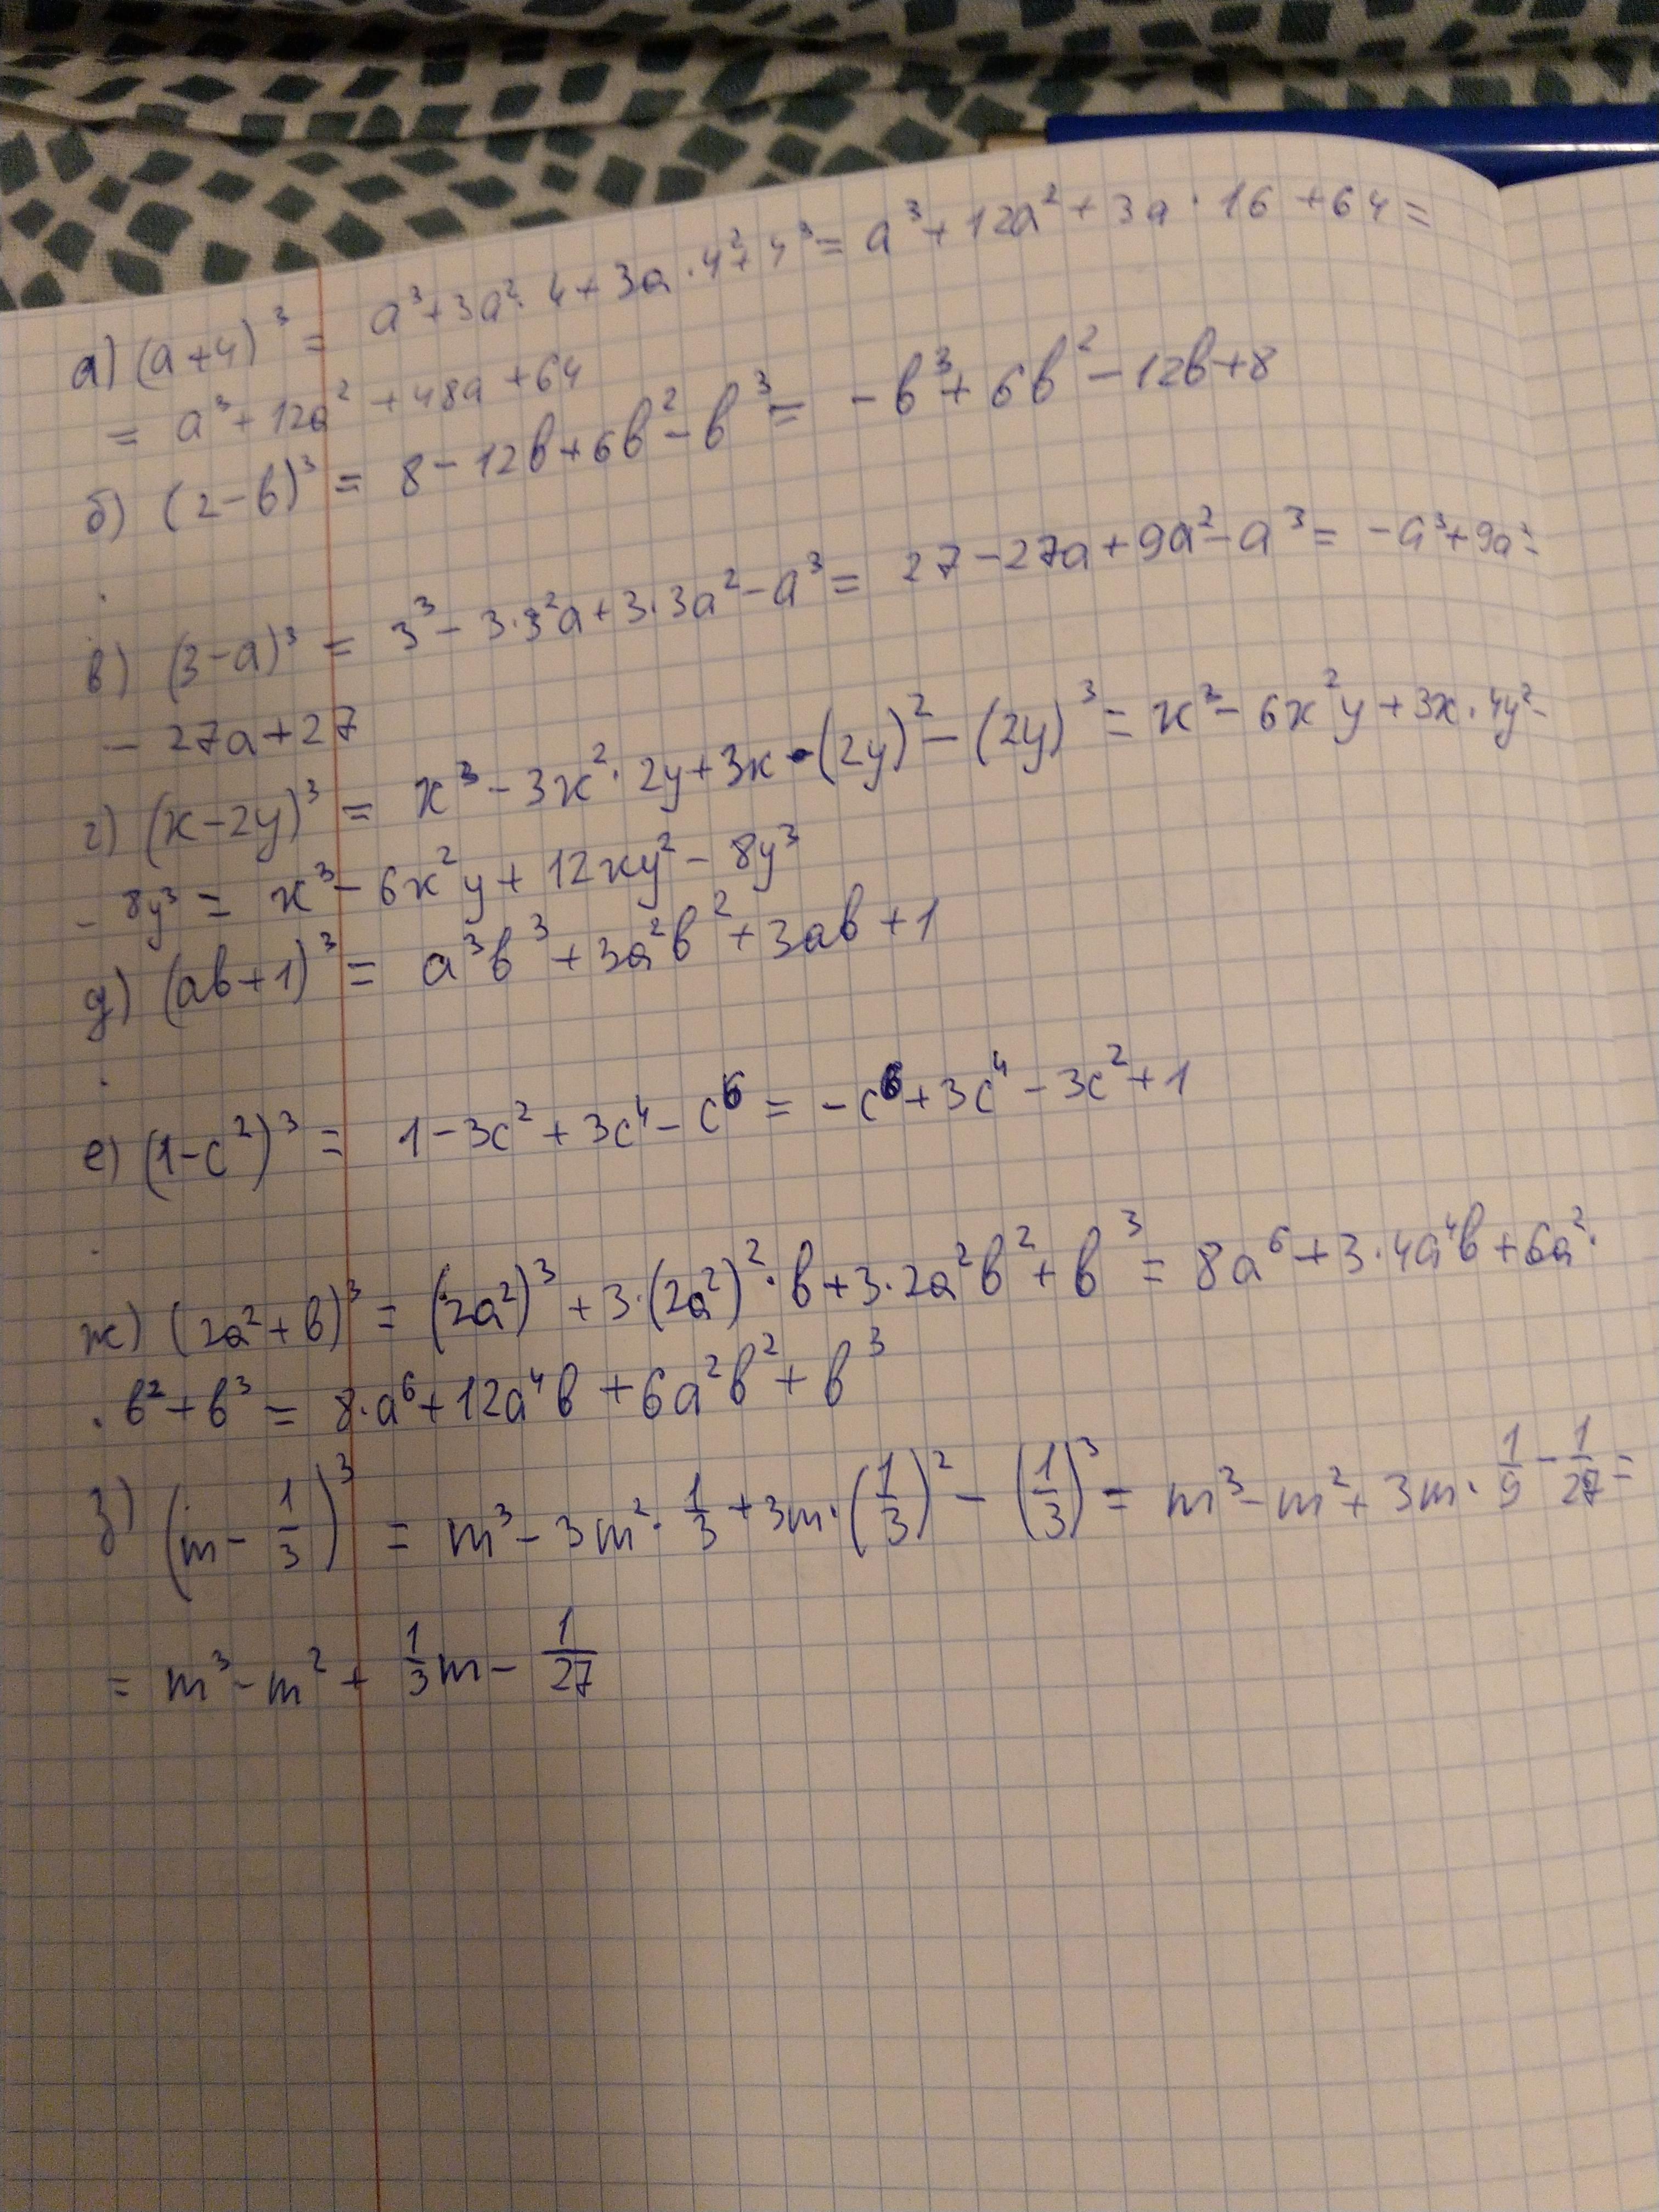 а) (a+4)³ = a³+3a²·4+3a·4²+4³= a³+12a²+3a·16+64=
= a³+12a²+48a+64
б) (2-b)³ = 8-12b+6b²-b³= -b³+6b²-12b+8
в) (3-a)³ = 3³-3·3²a+3·3a²-a³= 27-27a+9a²-a³= -a³+9a²-
- 27a+27
г) (x-2y)³ = x³-3x²·2y+3x·(2y)²-(2y)³= x³-6x²y+3x·4y²-
- 8y³ = x³-6x²y+12xy²-8y³
д) (ab+1)³ = a³b³+3a²b²+3ab+1
е) (1-c²)³ = 1-3c²+3c⁴-c⁶ = -c⁶+3c⁴-3c²+1
ж) (2a²+b)³ = (2a²)³+3·(2a²)²·b+3·2a²b²+b³ = 8a⁶+3·4a⁴b+6a²·
·b²+b³ = 8·a⁶+12a⁴b+6a²b²+b³
з) (m-1/3)³ = m³-3m²·1/3+3m·(1/3)²-(1/3)³= m³-m²+3m·1/9-1/27=
= m³-m²+1/3m-1/27